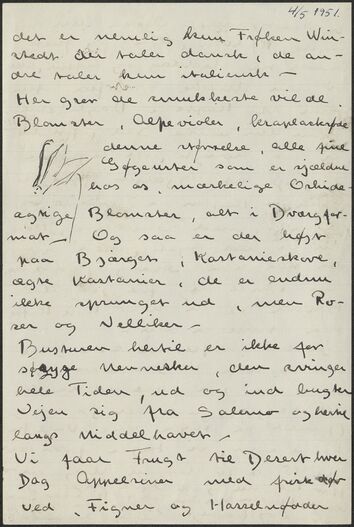 4/5 1951.
det er nemlig kun Frøken Win-
stedt der taler dansk, de an-
dre taler kun italiensk –
Her gror de smukkeste vilde
Blomster, Alpevioler,
denne størrelse, alle
Gøgeurter som er sjældne
hos os, mærkelige Orkide-
agtige Blomster, alt i Dværgfor-
mat – Og saa er der højt
paa Bjærget, Kastanieskove,
ægte Kastanier, de er endnu
ikke sprunget ud, men Ro-
ser og Nelliker –
Busturen hertil er ikke for
syge Mennesker, den svinger
hele Tiden, ud og ind bugter
Vejen sig fra Salerno og hertil
langs Middelhavet –
Vi faar Frugt til Desert hver
Dag Appelsiner med frisk
ved, Figner og Hasselnødder